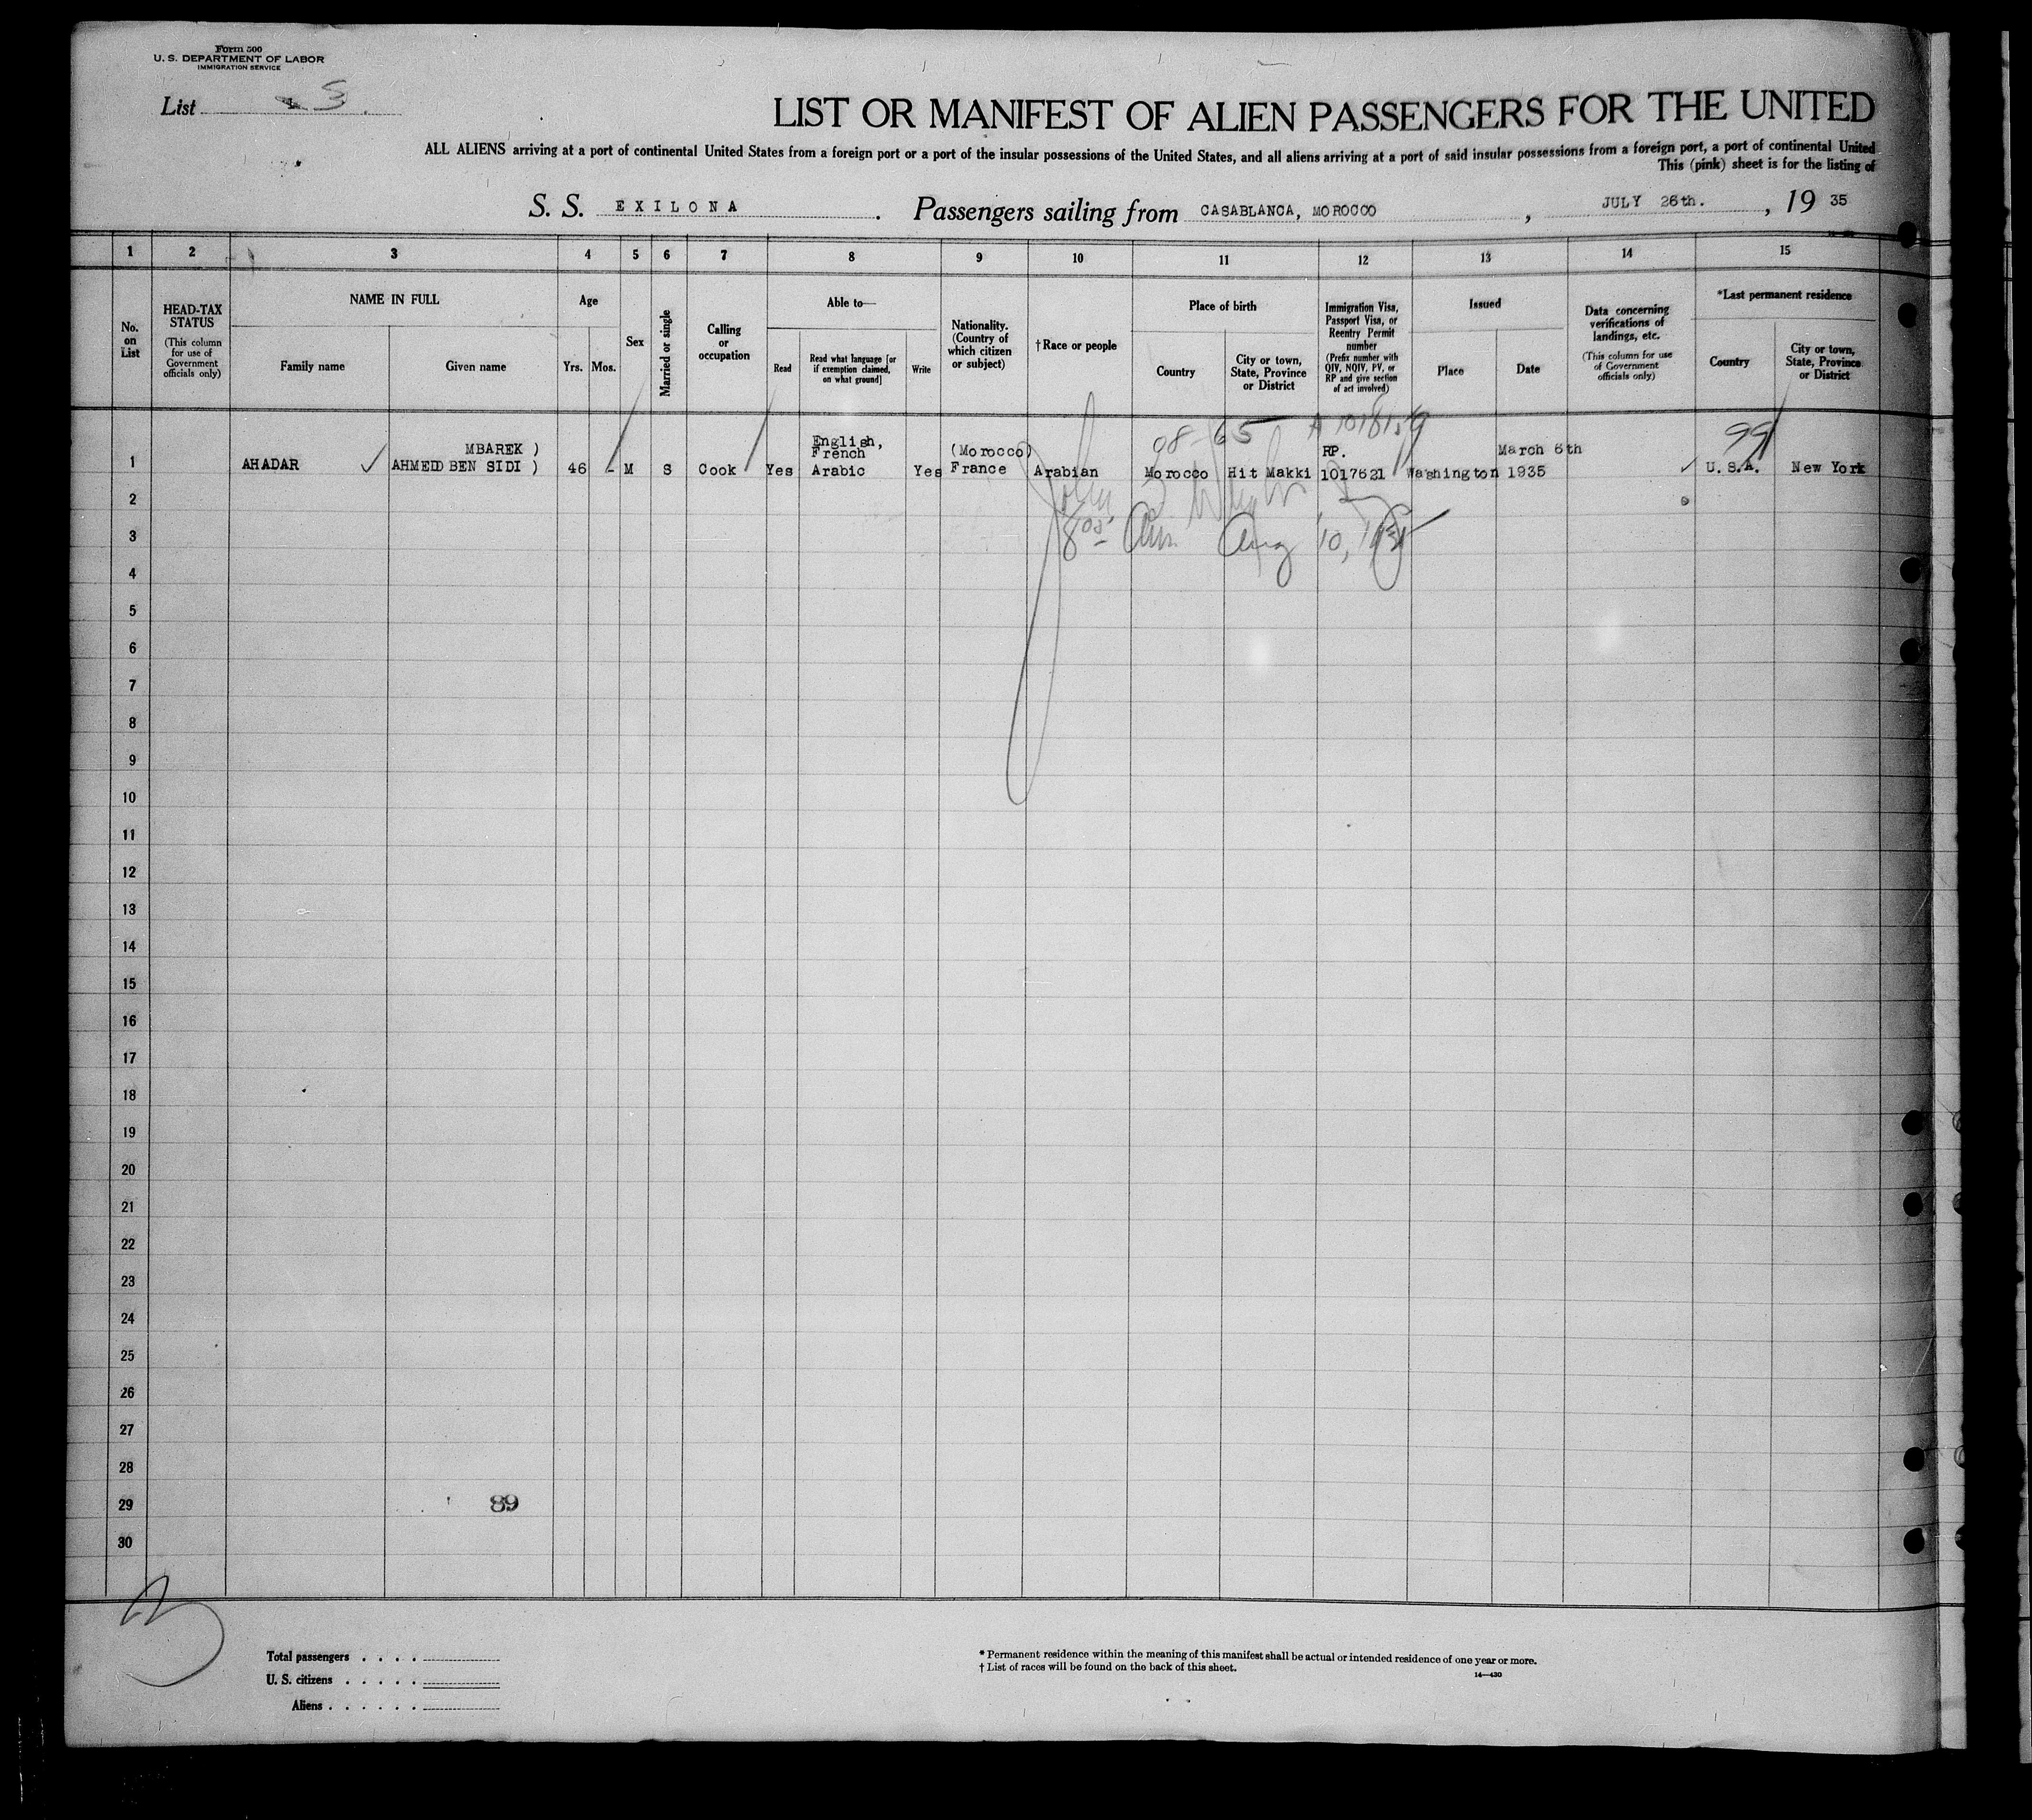 Form 500
U. S. DEPARTMENT OF LABOR
IMMIGRATION SERVICE
List 3
LIST OR MANIFEST OF ALIEN PASSENGERS FOR THE UNITED
ALL ALIENS arriving at a port of continental United States from a foreign port or a port of the insular possessions of the United States, and all aliens arriving at a port of said insular possessions from a foreign port, a port of continental United
This (pink) sheet is for the listing of
S. S. EXILONA . Passengers sailing from CASABLANCA, MOROCCO , JULY 26th. , 19 35
1 2 3 4 5 6 7 8 9 10 11 12 13 14 15
No. on List
HEAD-TAX STATUS (This column for use of Government officials only)
NAME IN FULL
Family name
Given name
Age
Yrs. Mos.
Sex
Married or single
Calling or occupation
Able to—
Read
Read what language [or if exemption claimed, on what ground]
Write
Nationality. (Country of which citizen or subject)
†Race or people
Place of birth
Country
City or town, State, Province or District
Immigration Visa, Passport Visa, or Reentry Permit number (Prefix number with QIV, NQIV, PV, or RP and give section of act involved)
Issued
Place
Date
Data concerning verifications of landings, etc. (This column for use of Government officials only)
*Last permanent residence
Country
City or town, State, Province or District
08-65 99
MBAREK ) English, French (Morocco) RP. March 6th
1 AHADAR AHMED BEN SIDI ) 46 - M S Cook Yes Arabic Yes France Arabian Morocco Hit Makki 1017621 Washington 1935 U.S.A. New York
2
3 8 00 Am Aug 10,
4
5
6
7
8
9
10
11
12
13
14
15
16
17
18
19
20
21
22
23
24
25
26
27
28
29 89
30
Total passengers . . . .
U. S. citizens . . . . .
Aliens . . . . . .
* Permanent residence within the meaning of this manifest shall be actual or intended residence of one year or more.
† List of races will be found on the back of this sheet.
14—430